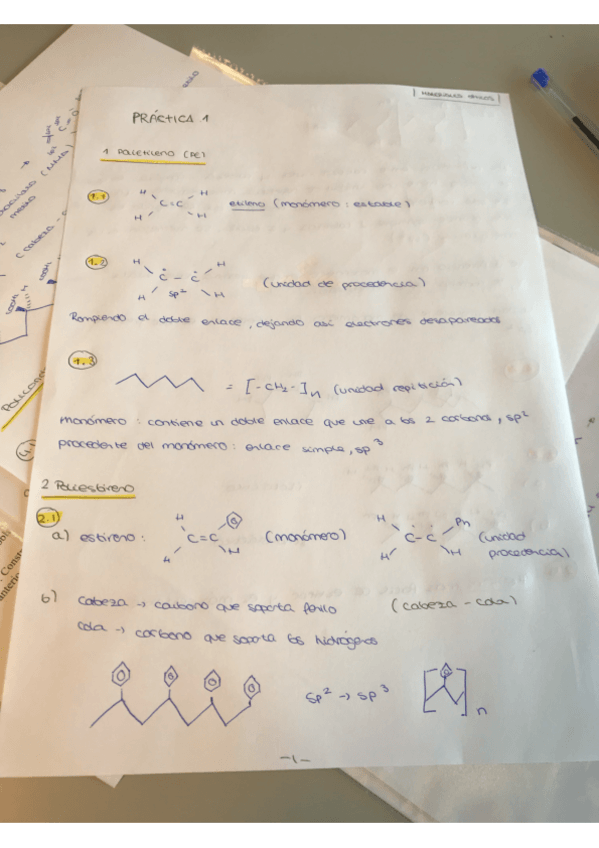 PRÁCTICA 1
1 POLIETILENO (PE)
1.1
H H
C = C
H H
etileno (monómero : estable)
1.2
H H
Ċ - Ċ
H sp² H
(unidad de procedencia)
Rompiendo el doble enlace, dejando así electrones desapareados
1.3
= [-CH₂-]n (unidad repitición)
monómero : contiene un doble enlace que une a los 2 carbonos, sp²
procedente del monómero : enlace simple, sp³
2 Poliestireno
2.1
a) estireno :
H
C = C
H H
(monómero)
H Ph
Ċ - Ċ
H H
(unidad
procedencia)
b) cabeza → carbono que soporta fenilo (cabeza - cola)
cola → carbono que soporta los hidrógenos
sp² → sp³
n
-1-